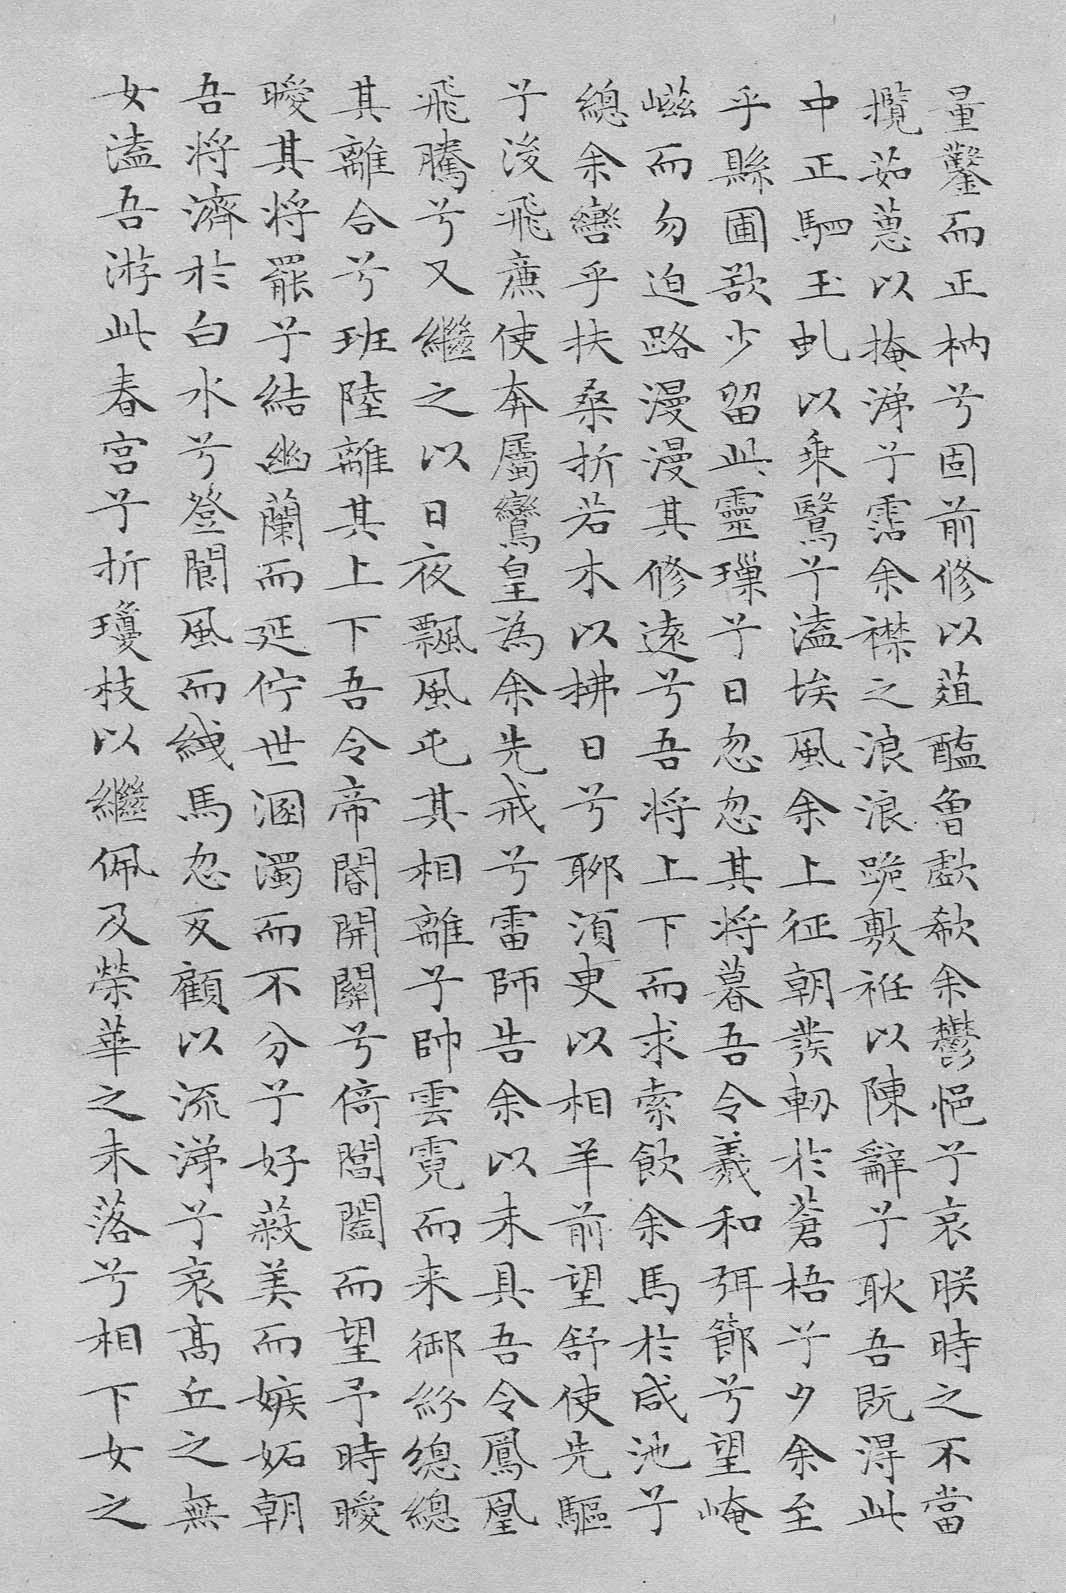 量鑿而正枘兮固前修以葅醢曾歔欷余鬱悒兮哀朕時之不當
攬茹蕙以掩涕兮霑余襟之浪浪跪敷衽以陳辭兮耿吾既得此
中正駟玉虬以乘鷖兮溘埃風余上征朝發軔於蒼梧兮夕余至
乎縣圃欲少留此靈璅兮日忽忽其將暮吾令羲和弭節兮望崦
嵫而勿迫路漫漫其修遠兮吾將上下而求索飲余馬於咸池兮
總余轡乎扶桑折若木以拂日兮聊須臾以相羊前望舒使先驅
兮後飛廉使奔屬鸞皇為余先戒兮雷師告余以未具吾令鳳凰
飛騰兮又繼之以日夜飄風屯其相離兮帥雲霓而来御紛總總
其離合兮班陸離其上下吾令帝閽開關兮倚閶闔而望予時曖
曖其將罷兮結幽蘭而延佇世溷濁而不分兮好蔽美而嫉妬朝
吾將濟於白水兮登閬風而紲馬忽反顧以流涕兮哀高丘之無
女溘吾游此春宮兮折瓊枝以繼佩及榮華之未落兮相下女之